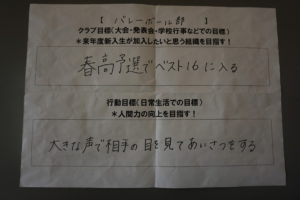 【 バレーボール部 】
クラブ目標(大会・発表会・学校行事などでの目標)
*来年度新入生が加入したいと思う組織を目指す!
春高予選でベスト16に入る
行動目標(日常生活での目標)
*人間力の向上を目指す!
大きな声で相手の目を見てあいさつをする